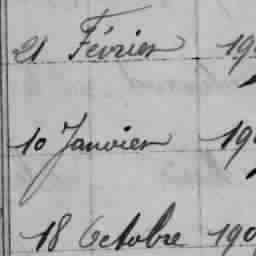 21 Février 19
10 Janvier 19
18 Octobre 190